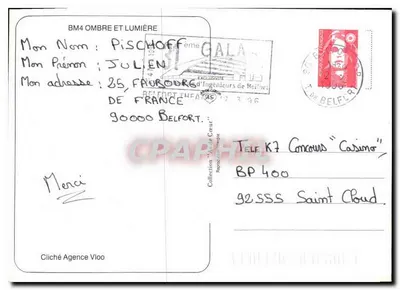 BM4 OMBRE ET LUMIÈRE
Mon Nom : PISCHOFF
Mon Prénom : JULIEN
Mon adresse : 25, FAUBOURG
DE FRANCE
90000 BELFORT.
Merci
Cliché Agence Vloo
GALA
d'Ingénieurs de
BELFORT
Collection
TELE K7 Concours "Casino",
BP 400
92555 Saint Cloud.
CPARAMA